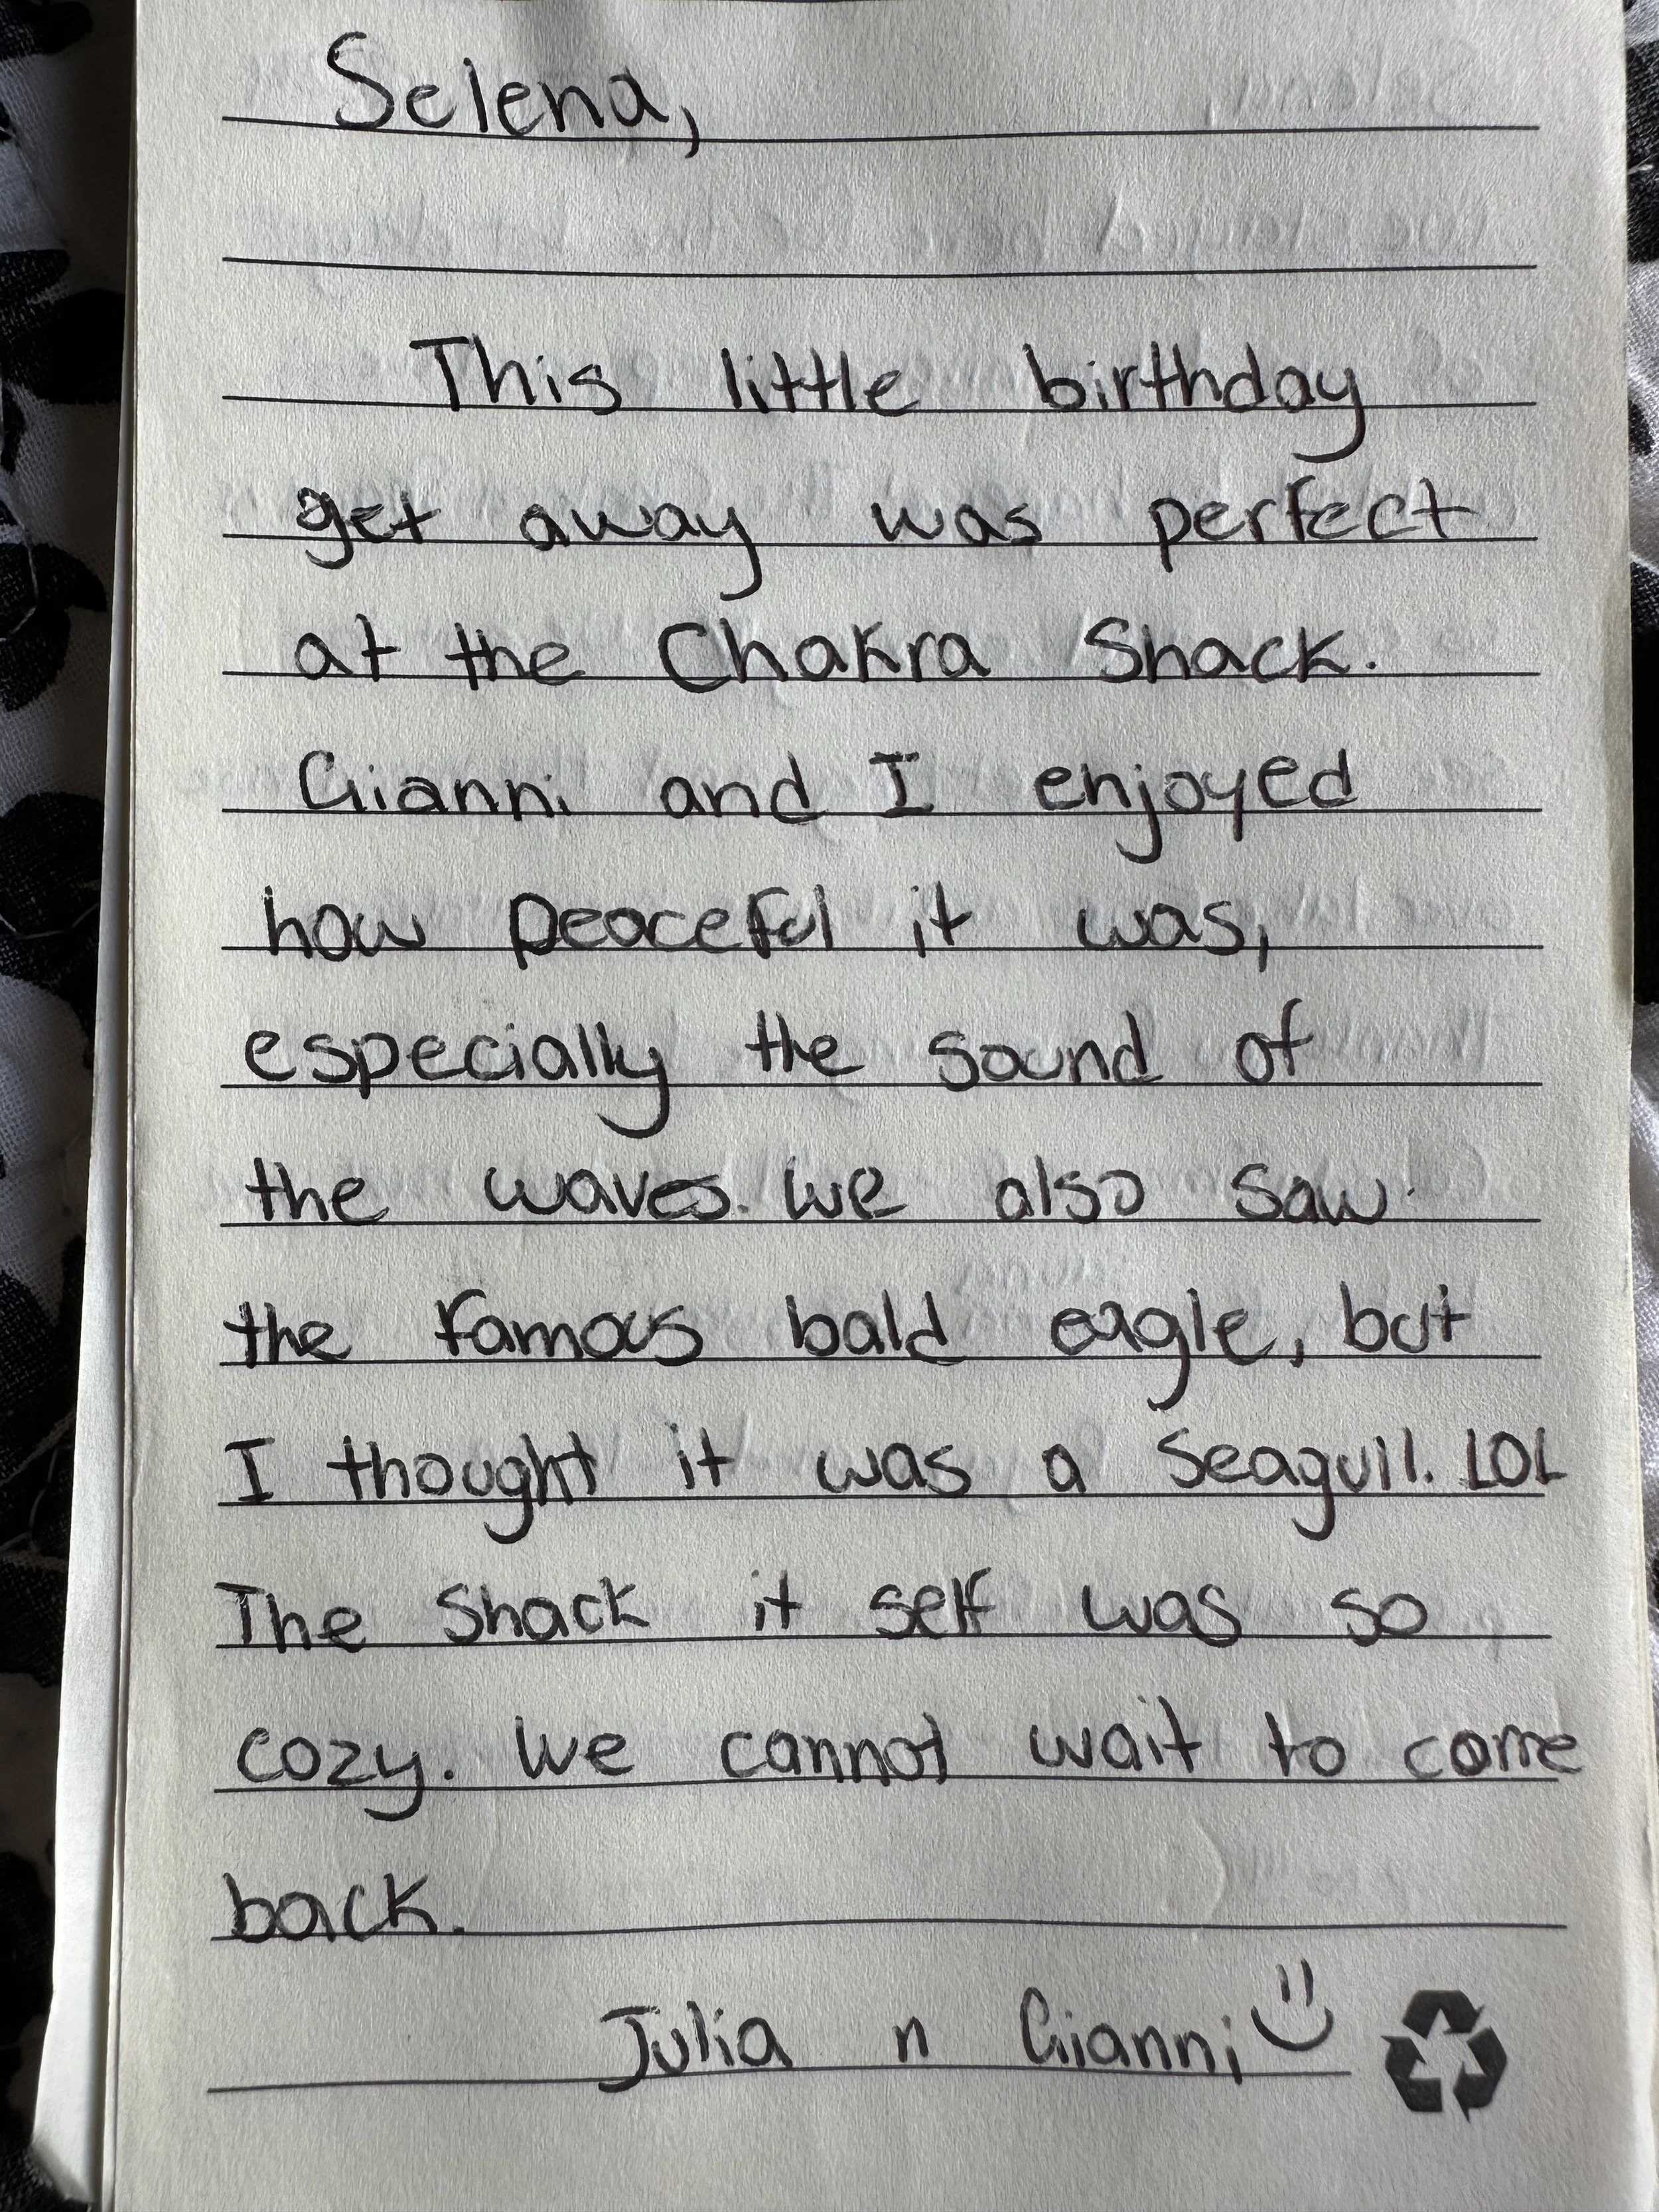 Selena,
This little birthday
get away was perfect
at the Chakra Shack.
Gianni and I enjoyed
how peaceful it was,
especially the sound of
the waves. We also saw
the famous bald eagle, but
I thought it was a seagull. LOL
The Shack it self was so
cozy. We cannot wait to come
back.
Julia n Gianni